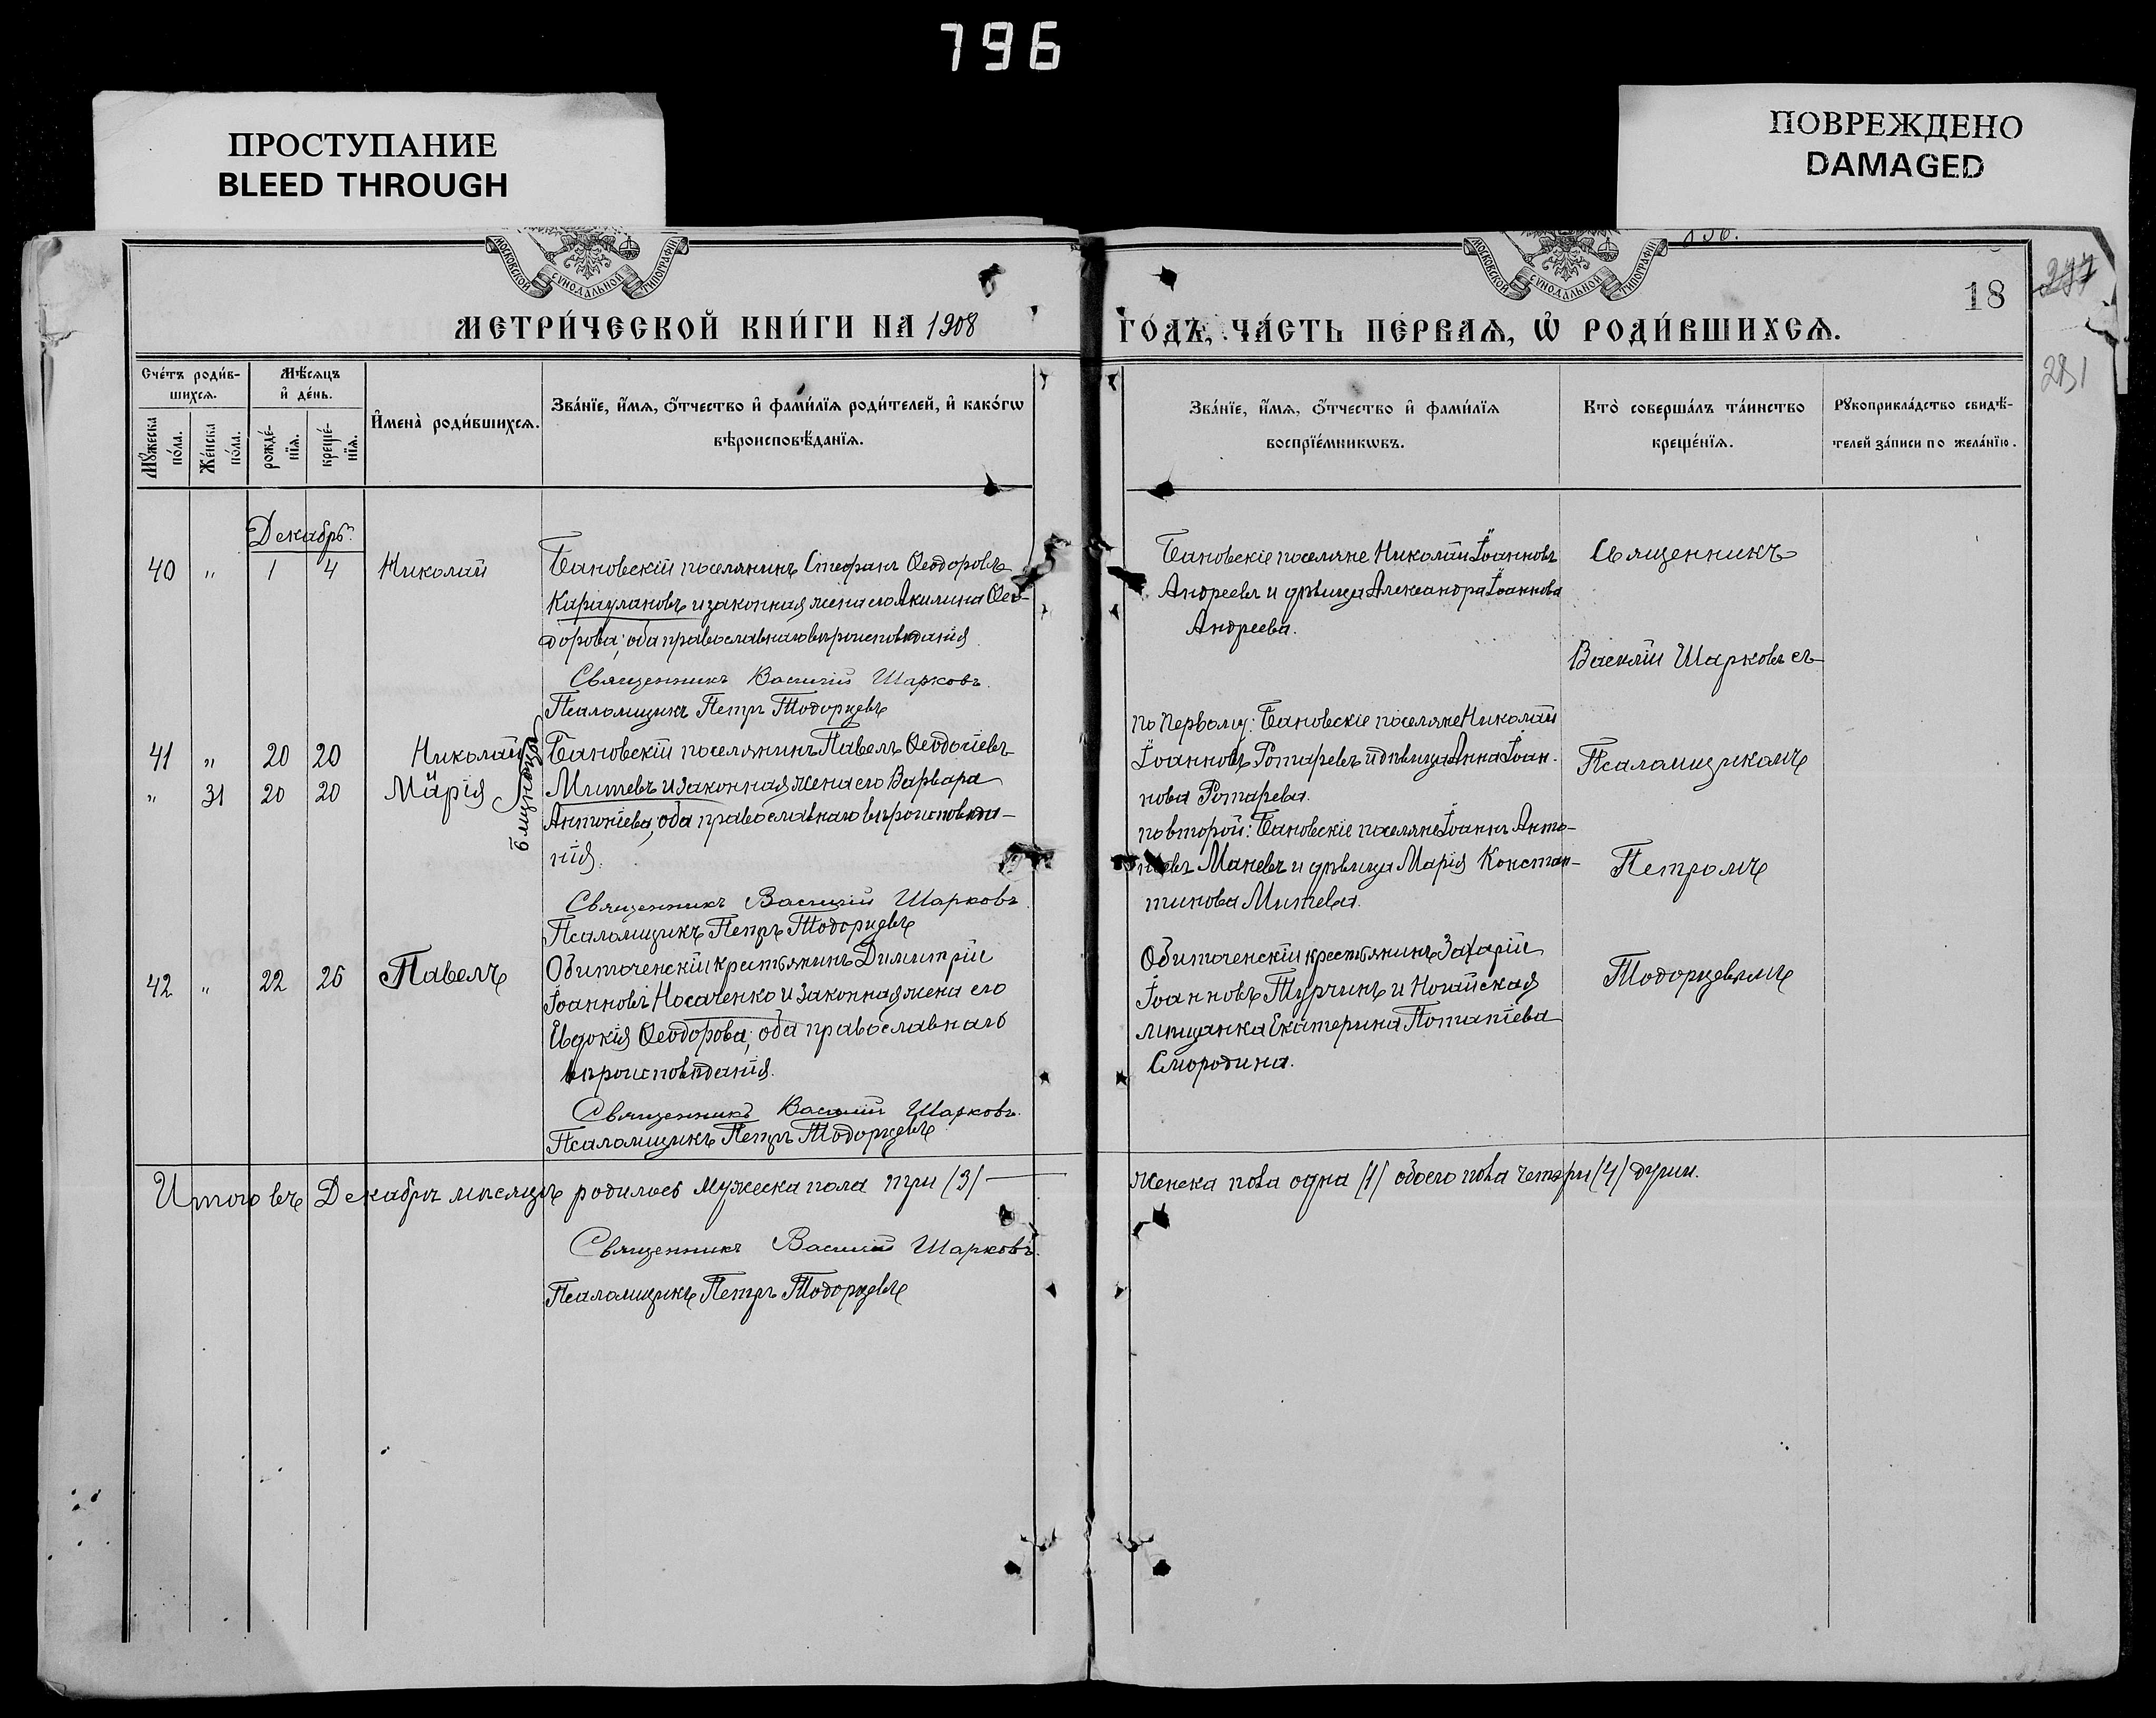 796
ПРОСТУПАНИЕ
BLEED THROUGH
ПОВРЕЖДЕНО
DAMAGED
МОСКОВСКОЙ СѴНОДАЛЬНОЙ ТИПОГРАФІИ
МОСКОВСКОЙ СѴНОДАЛЬНОЙ ТИПОГРАФІИ
18
277
281
МЕТРИ́ЧЕСКОЙ КНИ́ГИ НА 1908
ГО́ДЪ, ЧА́СТЬ ПЕ́РВАѦ, Ѡ РОДИ́ВШИХСѦ.
Сче́тъ роди́в-
шихсѧ.
Мѣ́сѧцъ
и҆ де́нь.
Мꙋ́жеска
по́ла.
Же́нска
по́ла.
рожде́-
нїѧ.
креще́-
нїѧ.
И҆мена̀ роди́вшихсѧ.
Зва́нїе, и҆́мѧ, ѻ҆́тчество и҆ фами́лїѧ роди́телей, и҆ како́гѡ
вѣроисповѣ́данїѧ.
Зва́нїе, и҆́мѧ, ѻ҆́тчество и҆ фами́лїѧ
воспрїе́мникѡвъ.
Кто̀ соверша́лъ та́инство
креще́нїѧ.
Рꙋкоприкла́дство свидѣ́-
телей за́писи по жела́нїю.
Декабрь
40 " 1 4 Николай
Бановскій поселянинъ Стефанъ Ѳеодоровъ
Карауlановъ и законная жена его Акилина Ѳео-
дорова; оба православнаго вѣроисповѣданія.
Священникъ Василій Шарковъ.
Псаломщикъ Петръ Тодорцевъ
Бановскіе поселяне Николай Іоанновъ
Андреевъ и дѣвица Александра Іоаннова
Андреева.
Священникъ
Василій Шарковъ съ
Псаломщикомъ
Петромъ
Тодорцевымъ
41 " 20 20 Николай
" 31 20 20 Марія
близнецы
Бановскій поселянинъ Павелъ Ѳеодосіевъ
Митевъ и законная жена его Варвара
Антоніева; оба православнаго вѣроисповѣда-
нія.
Священникъ Василій Шарковъ
Псаломщикъ Петръ Тодорцевъ
по первому: Бановскіе поселяне Николай
Іоанновъ Ротаревъ и дѣвица Анна Іоан-
нова Ротарева.
по второй: Бановскіе поселяне Іоаннъ Анто-
ніевъ Маневъ и дѣвица Марія Констан-
тинова Митева.
42 " 22 25 Павелъ
Обиточенскій крестьянинъ Димитрій
Іоанновъ Носаченко и законная жена его
Евдокія Ѳеодорова; оба православнаго
вѣроисповѣданія.
Священникъ Василій Шарковъ.
Псаломщикъ Петръ Тодорцевъ
Обиточенскій крестьянинъ Захарій
Іоанновъ Турчинъ и Ногайская
мѣщанка Екатерина Потапіева
Смородина.
Итого въ Декабрѣ мѣсяцѣ родилось мужеска пола три /3/ —
женска пола одна /1/ обоего пола четыри /4/ души.
Священникъ Василій Шарковъ.
Псаломщикъ Петръ Тодорцевъ